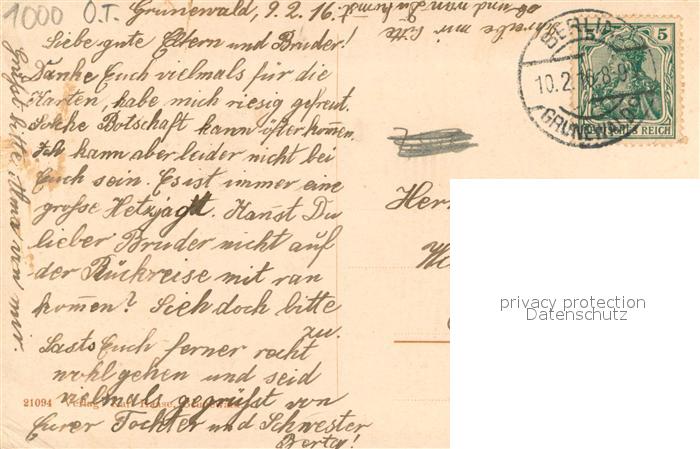 1000 O.T. Grunewald, 9.2.16.
Liebe gute Eltern und Bruder!
Danke Euch vielmals für die
Karten, habe mich riesig gefreut.
Solche Botschaft kann öfter kom̄en.
Ich kann aber leider nicht bei
Euch sein. Es ist immer eine
grosse Hetzjagtt. Kanst Du
lieber Bruder nicht auf
der Rückreise mit ran
kom̄en? Sieh doch bitte
zu.
Lasts Euch ferner recht
wohl gehen und seid
vielmals gegrüßt von
Eurer Tochter und Schwester
Berta!
Grüsst bitte von mir
schreibe mir bitte
ob und wann Du kommst
21094 Verlag
BERLIN
10.2.16.8-9
GRUNEWALD
5
DEUTSCHES REICH
Herr
privacy protection
Datenschutz